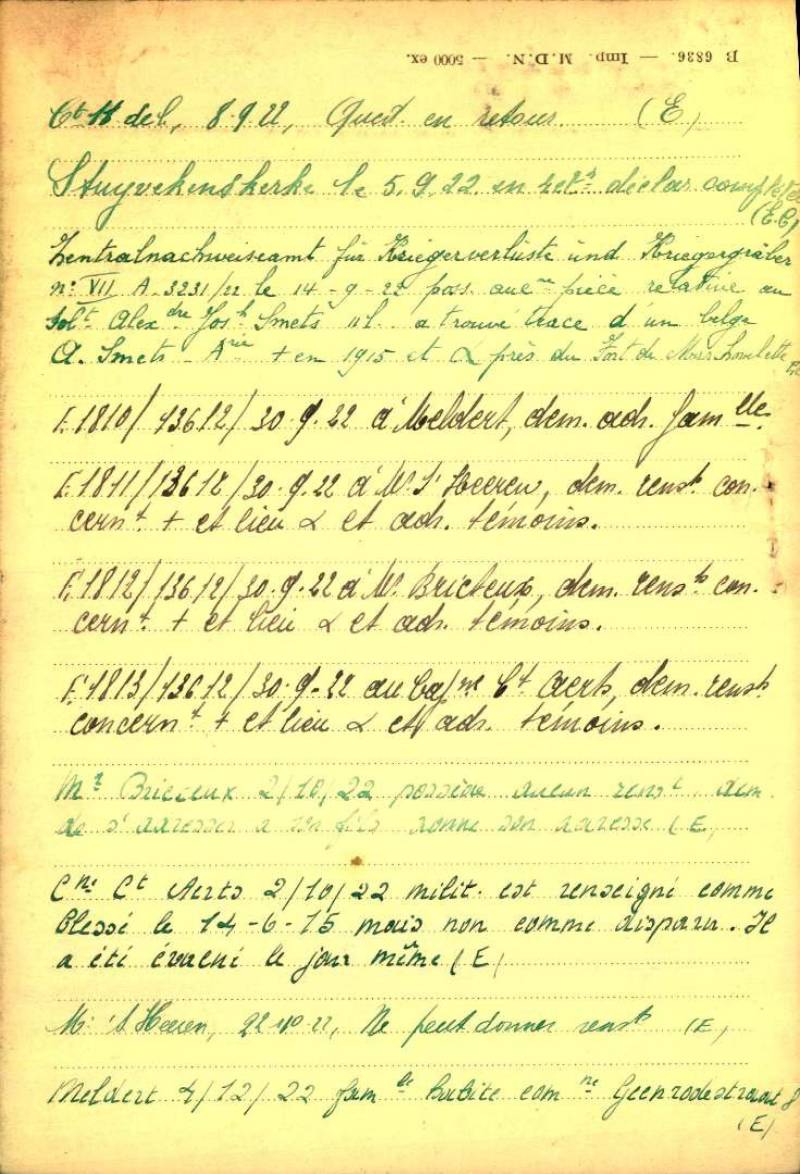 B 6836. — Imp. M.D.N. — 5000 ex.
Ct 11 del, 8.9.22, Quest. en retour (E)
Stuyvekenskerke le 5.9.22 en ret.r déclar.
(E.C)
Zentralnachweiseamt für Kriegerverlüste ünd Kriegergräber
n° VII A-3231/22 le 14-9-22 poss. aucne pièce relative au
Solt Alexdre Josh Smets 11 l. a trouvé trace d'un belge
A. Smets - Arie + en 1915 et α près du Fort de
F.1810/13612/30.9.22 à Meldert, dem. adr. famille.
F.1811/13612/30.9.22 à Mr S'Heeren, dem. renst. con-
cernt. + et lieu α et adr. témoins.
F.1812/13612/30.9.22 à Mr. Bricteux, dem. rensts con-
cernt. + et lieu α et adr. témoins.
F.1813/13612/30.9.22 au Capne Ct Aerts, dem. renst
concernt + et lieu α et adr. témoins.
Mr 2/10/22 possède aucun renst. dem.
de s'adresser a son fils donne son adresse (E)
Cne Ct Aerts 2/10/22 milit. est renseigné comme
blessé le 14-6-15 mais non comme disparu. Il
a été évacué le jour même (E)
Mr S'Heeren, 22.10.22, Ne peut donner renst (E)
Meldert 4/12/22 famle habite comne Geenrodestraat
(E)